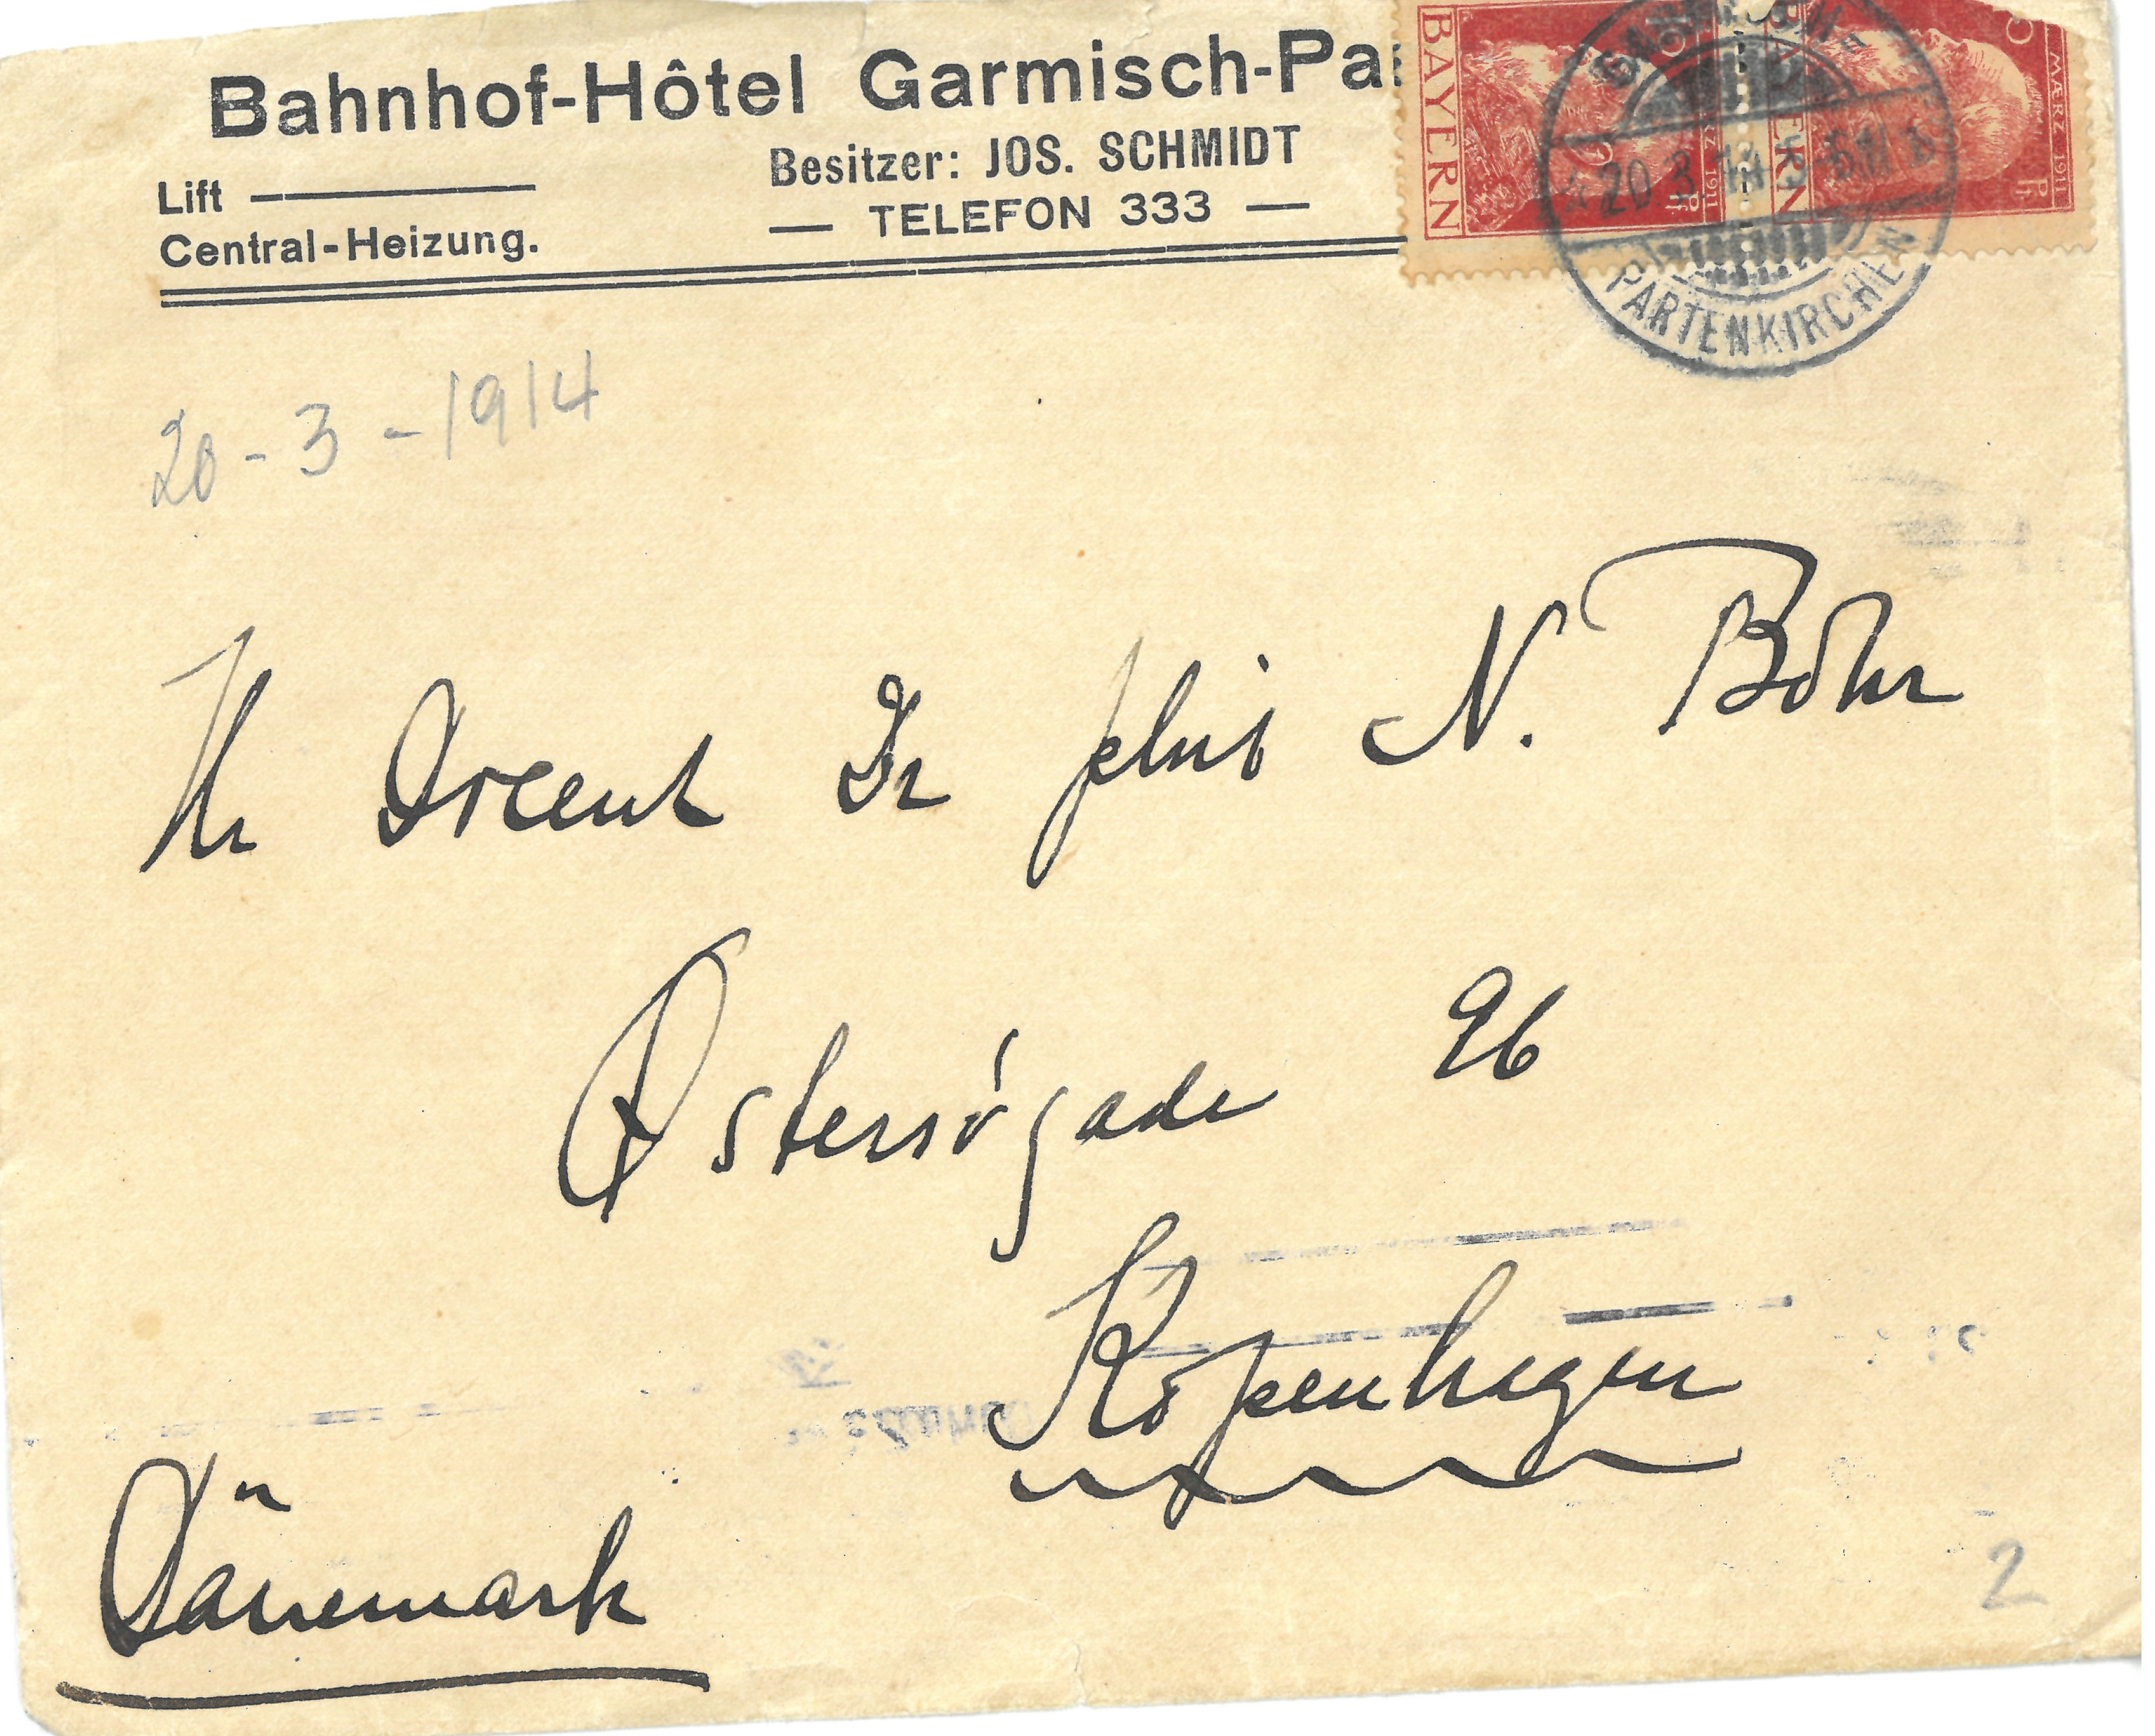 Bahnhof-Hôtel Garmisch-Pa
Besitzer: JOS. SCHMIDT
Lift
— TELEFON 333 —
Central-Heizung.
BAYERN
1911
BAYERN
MÆRZ 1911
GARMISCH-
20 3 14
PARTENKIRCHEN
20-3-1914
Hr Docent Dr phil N. Bohr
Østersögade 96
Köpenhagen
Dänemark
2